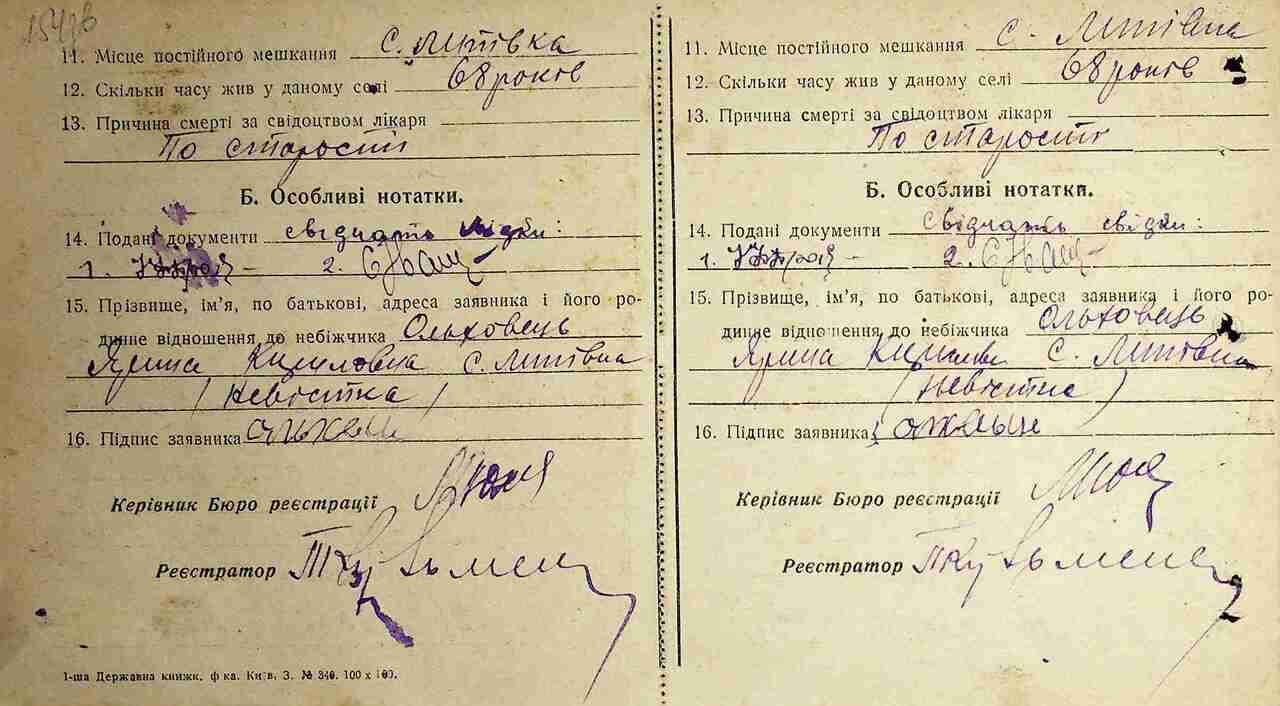 11. Місце постійного мешкання с. Литівка
12. Скільки часу жив у даному селі 68 років
13. Причина смерті за свідоцтвом лікаря
По старости
Б. Особливі нотатки.
14. Подані документи свідчать свідки:
1. 2.
15. Прізвище, ім'я, по батькові, адреса заявника і його ро-
динне відношення до небіжчика Ольховець
Ярина с. Литівка
(невістка)
16. Підпис заявника
Керівник Бюро реєстрації
Реєстратор
1-ша Державна книжк. ф-ка. Київ, З. № 340. 100 х 100.
11. Місце постійного мешкання с. Литівка
12. Скільки часу жив у даному селі 68 років
13. Причина смерті за свідоцтвом лікаря
По старости
Б. Особливі нотатки.
14. Подані документи свідчать свідки:
1. 2.
15. Прізвище, ім'я, по батькові, адреса заявника і його ро-
динне відношення до небіжчика Ольховець
Ярина с. Литівка
(невістка)
16. Підпис заявника
Керівник Бюро реєстрації
Реєстратор